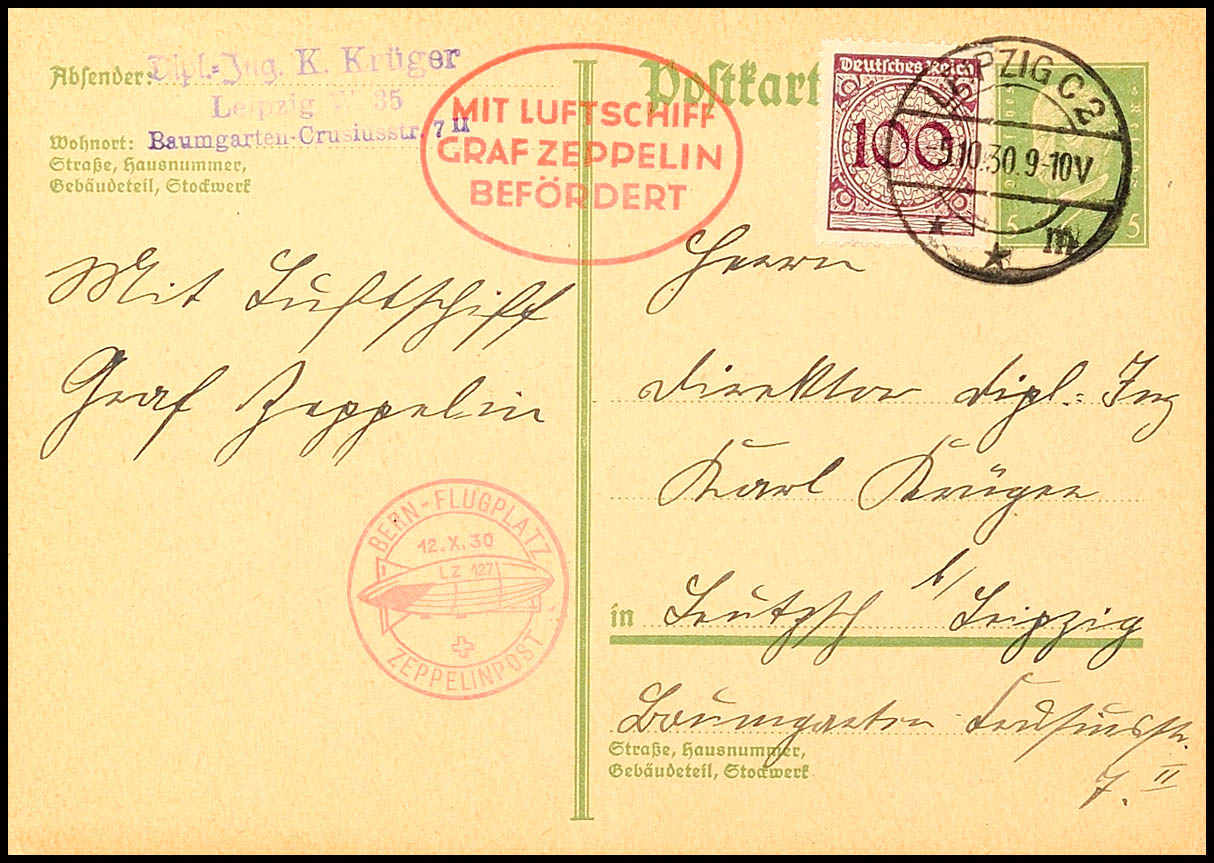 Absender:
Dipl.-Ing. K. Krüger
Leipzig W. 35
Wohnort:
Baumgarten-Crusiusstr. 7 II
Straße, Hausnummer,
Gebäudeteil, Stockwerk
MIT LUFTSCHIFF
GRAF ZEPPELIN
BEFÖRDERT
Postkart
Deutsches Reich
100
LEIPZIG C 2
10.30.9-10V
m
5 5
Mit Luftschiff
Graf Zeppelin
BERN-FLUGPLATZ
12.X.30
LZ 127
ZEPPELINPOST
Herrn
Direktor Dipl.-Ing
Karl Krüger
in Leutzsch b/ Leipzig
Baumgarten Crusiusstr.
Straße, Hausnummer,
Gebäudeteil, Stockwerk
7. II